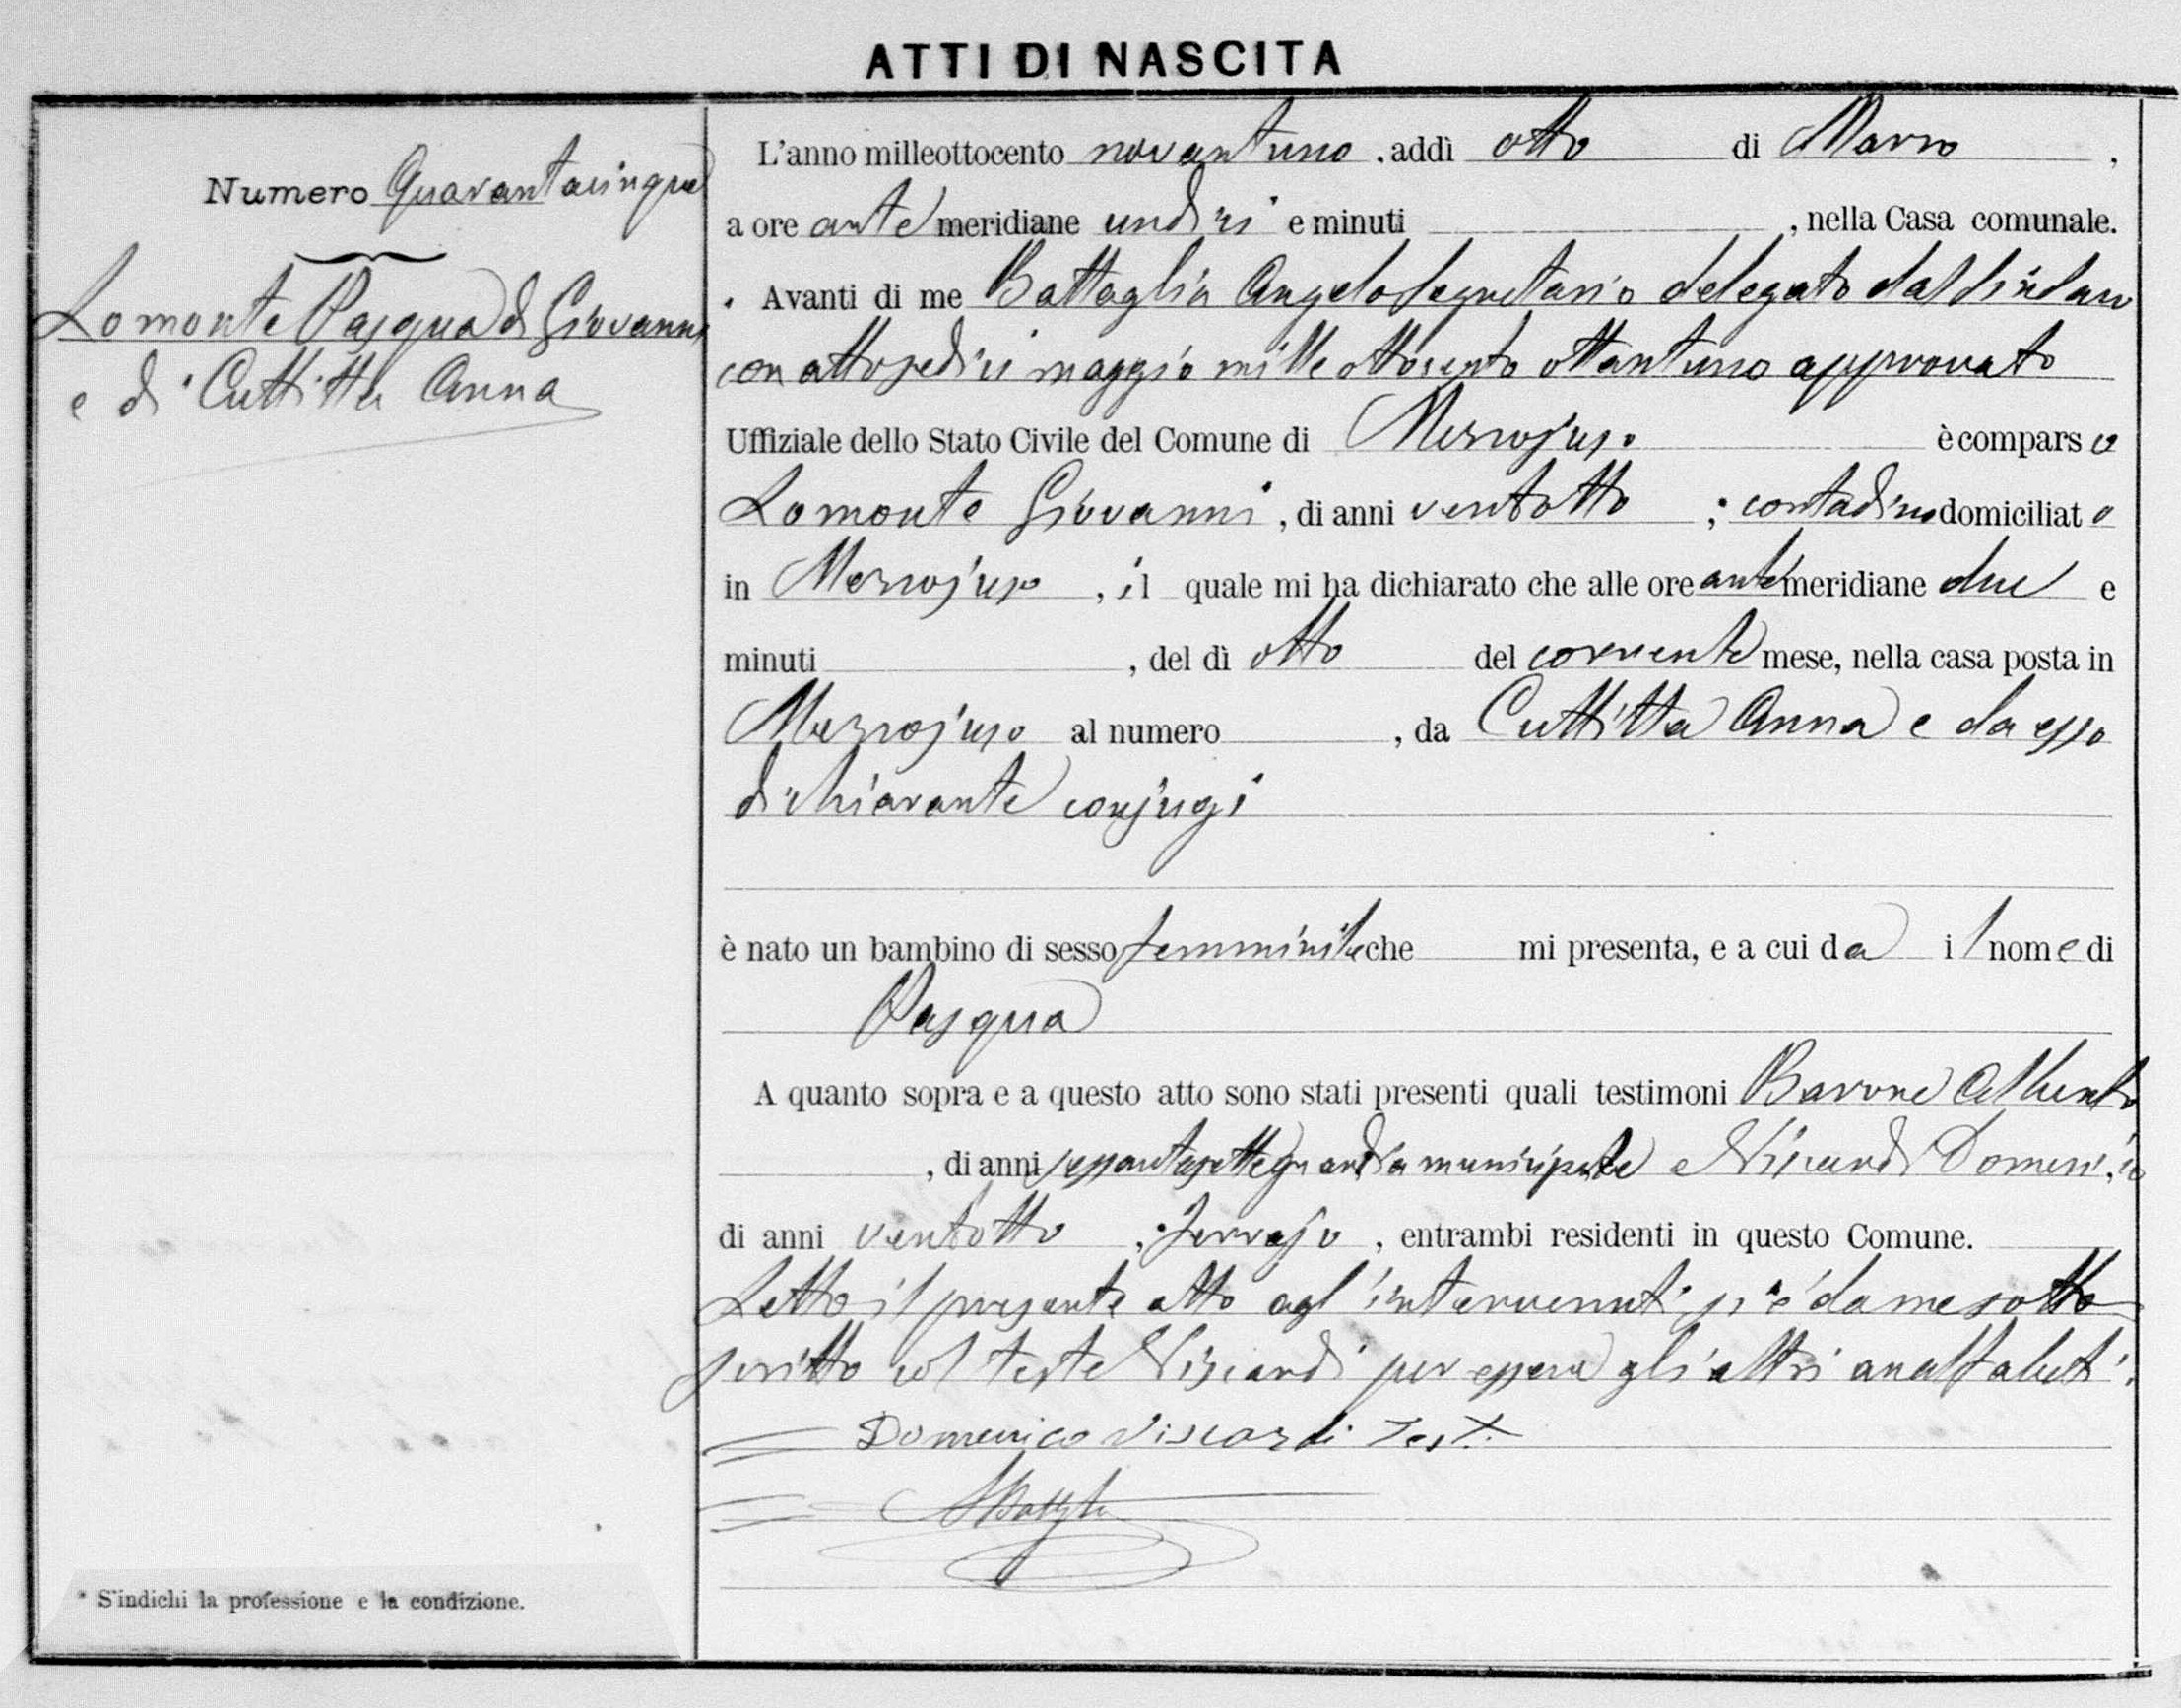 ATTI DI NASCITA
Numero Quarantacinque
Lomonte Pasqua di Giovanni
e di Cuttitta Anna
L'anno milleottocento novantuno, addì otto di Marzo,
a ore antemeridiane undici e minuti , nella Casa comunale.
Avanti di me Battaglia Angelo Segretario delegato dal Sindaco
con atto sedici maggio mille ottocento ottantuno approvato
Uffiziale dello Stato Civile del Comune di Mezzojuso è comparso
Lomonte Giovanni, di anni ventotto, contadino domiciliato
in Mezzojuso, il quale mi ha dichiarato che alle ore antimeridiane due e
minuti , del dì otto del corrente mese, nella casa posta in
Mezzojuso al numero , da Cuttitta Anna e da esso
dichiarante conjugi
è nato un bambino di sesso femminile che mi presenta, e a cui da il nome di
Pasqua
A quanto sopra e a questo atto sono stati presenti quali testimoni Barone Alberto
, di anni sessantasette guardia municipale e Viscardi Domenico
di anni ventotto, , entrambi residenti in questo Comune.
Letto il presente atto agl'intervenuti si è da me sotto
scritto col teste Viscardi per essere gli altri analfabeti.
Domenico Viscardi Test.
ABattaglia
* S'indichi la professione e la condizione.